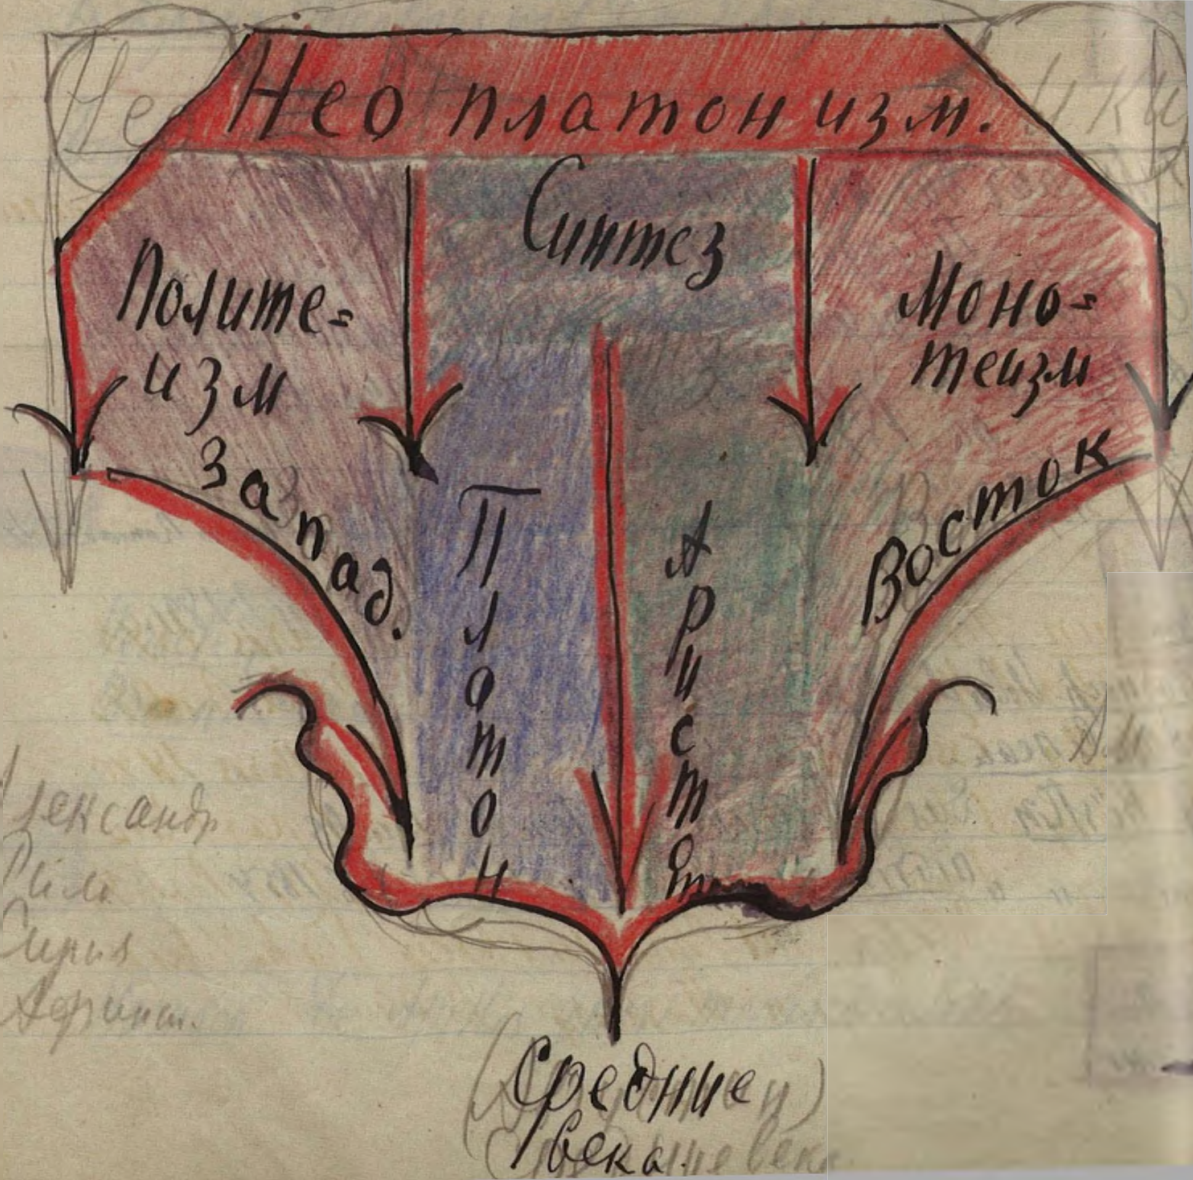 Неоплатонизм.
Синтез
Полите=
изм
Моно=
теизм
Запад.
Восток
Платон
Аристот
Александр
Рим
Сирия
Средние
века.